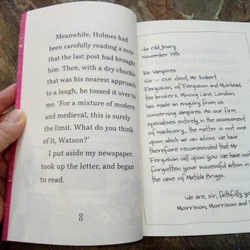 Meanwhile, Holmes had
been carefully reading a note
that the last post had brought
him. Then, with a dry chuckle
that was his nearest approach
to a laugh, he tossed it over to
me. 'For a mixture of modern
and medieval, this is surely
the limit. What do you think
of it, Watson?'
I put aside my newspaper,
took up the letter, and began
to read.
8
Old Jewry,
November 19th
Vampires
Sir – Our client, Mr Robert
Ferguson, of Ferguson and Muirhead,
tea brokers, Mincing Lane, London,
has made an enquiry from us
concerning vampires. As our firm
specialises entirely in the assessment
of machinery, the matter is not one
upon which we can advise. We have
therefore recommended that Mr
Ferguson call upon you. We have not
forgotten your successful action in
the case of Matilda Briggs.
We are, sir, faithfully
Morrison, Morrison and